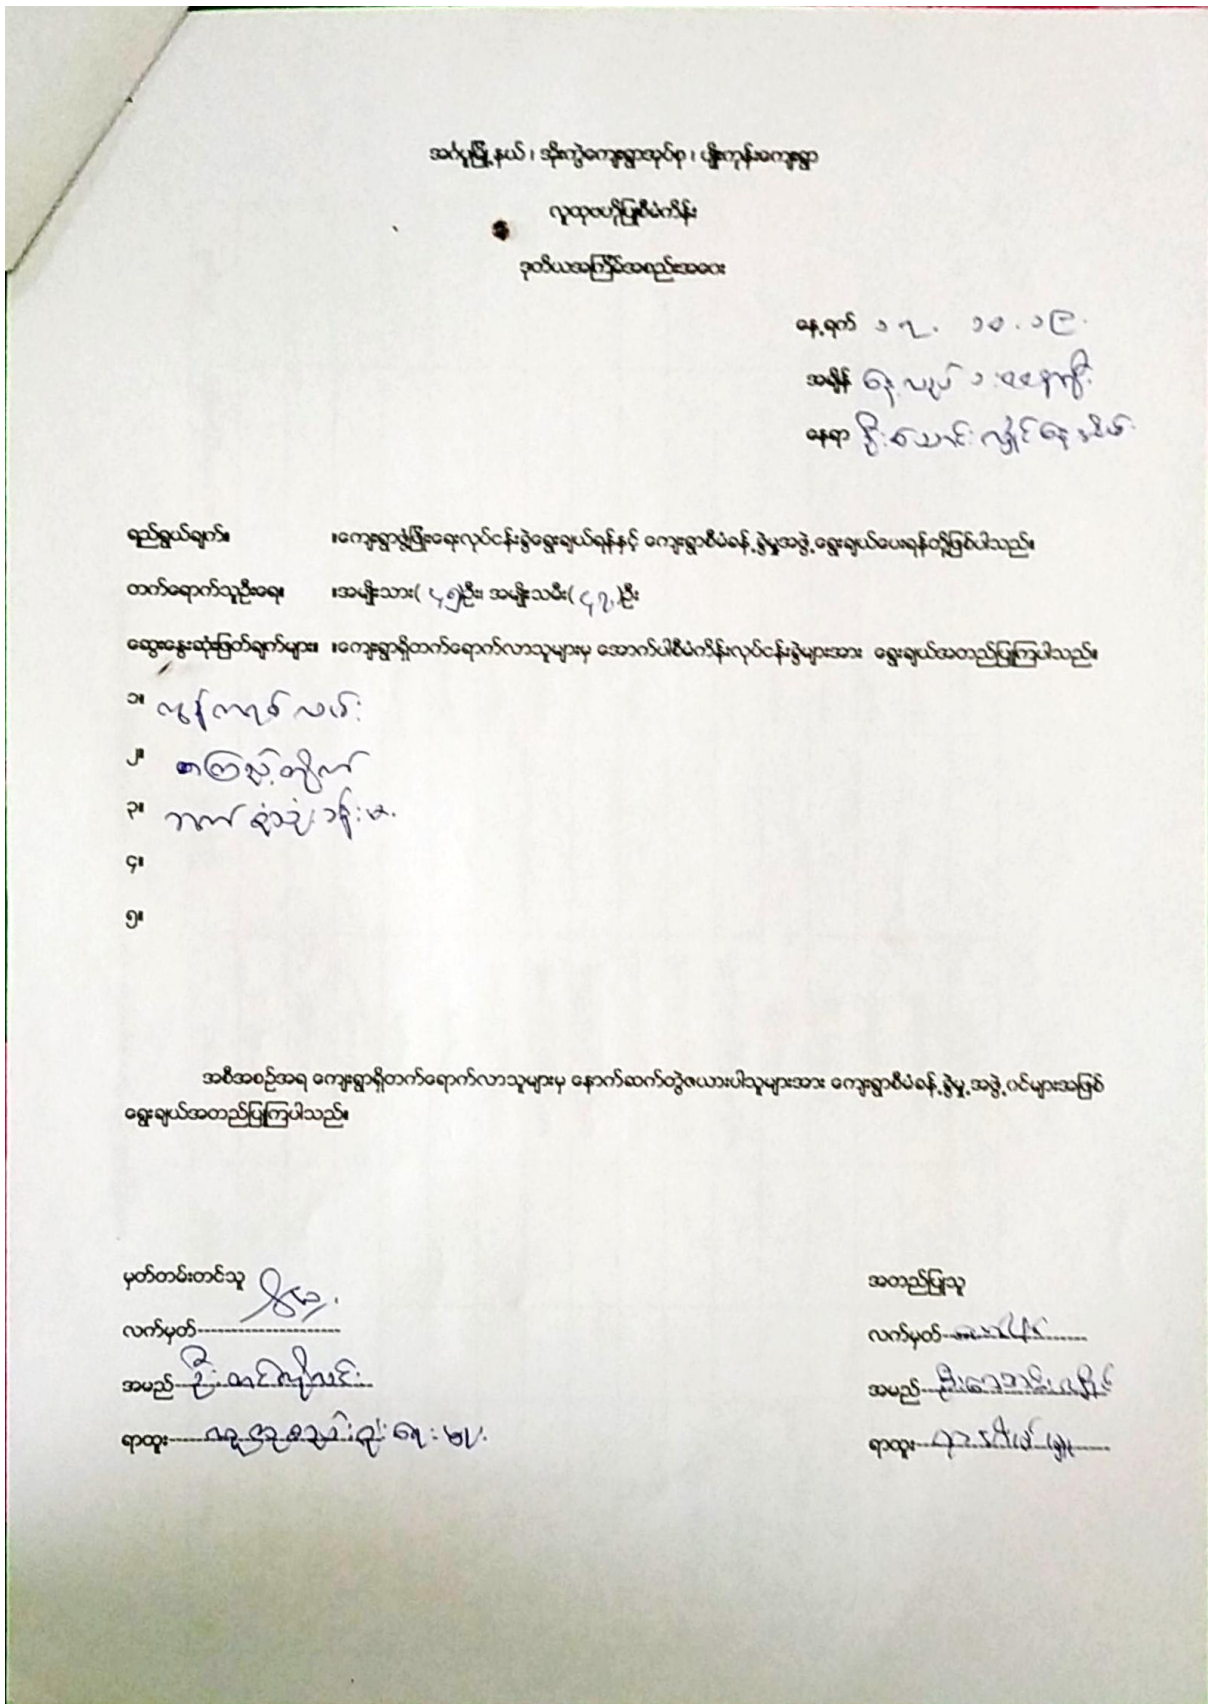 အင်္ဂပူမြို့နယ် ၊ အိုးကွဲကျေးရွာအုပ်စု ၊ ပျိုးကုန်းကျေးရွာ
လူထုဗဟိုပြုစီမံကိန်း
ဒုတိယအကြိမ်အစည်းအဝေး
နေ့ရက် ၁၇. ၁၀. ၁၉.
အချိန် နေ့လယ် ၁:
နေရာ ဦးအောင်လှိုင်နေအိမ်
ရည်ရွယ်ချက်။ ။ကျေးရွာဖွံ့ဖြိုးရေးလုပ်ငန်းခွဲရွေးချယ်ရန်နှင့် ကျေးရွာစီမံခန့်ခွဲမှုအဖွဲ့ရွေးချယ်ပေးရန်တို့ဖြစ်ပါသည်။
တက်ရောက်သူဦးရေ။ ။အမျိုးသား( ၄၅)ဦး၊ အမျိုးသမီး( ၄၇ )ဦး
ဆွေးနွေးဆုံးဖြတ်ချက်များ။ ။ကျေးရွာရှိတက်ရောက်လာသူများမှ အောက်ပါစီမံကိန်းလုပ်ငန်းခွဲများအား ရွေးချယ်အတည်ပြုကြပါသည်။
၁။ ကွန်ကရစ်လမ်း
၂။ စာကြည့်တိုက်
၃။ ဘက်စုံသုံးခန်းမ.
၄။
၅။
အစီအစဉ်အရ ကျေးရွာရှိတက်ရောက်လာသူများမှ နောက်ဆက်တွဲဇယားပါသူများအား ကျေးရွာစီမံခန့်ခွဲမှု့အဖွဲ့ဝင်များအဖြစ်
ရွေးချယ်အတည်ပြုကြပါသည်။
မှတ်တမ်းတင်သူ
လက်မှတ်
အမည် ဦး
ရာထူး လူထုစည်းရုံးရေးမှူး
အတည်ပြုသူ
လက်မှတ်
အမည် ဦးအောင်လှိုင်
ရာထူး